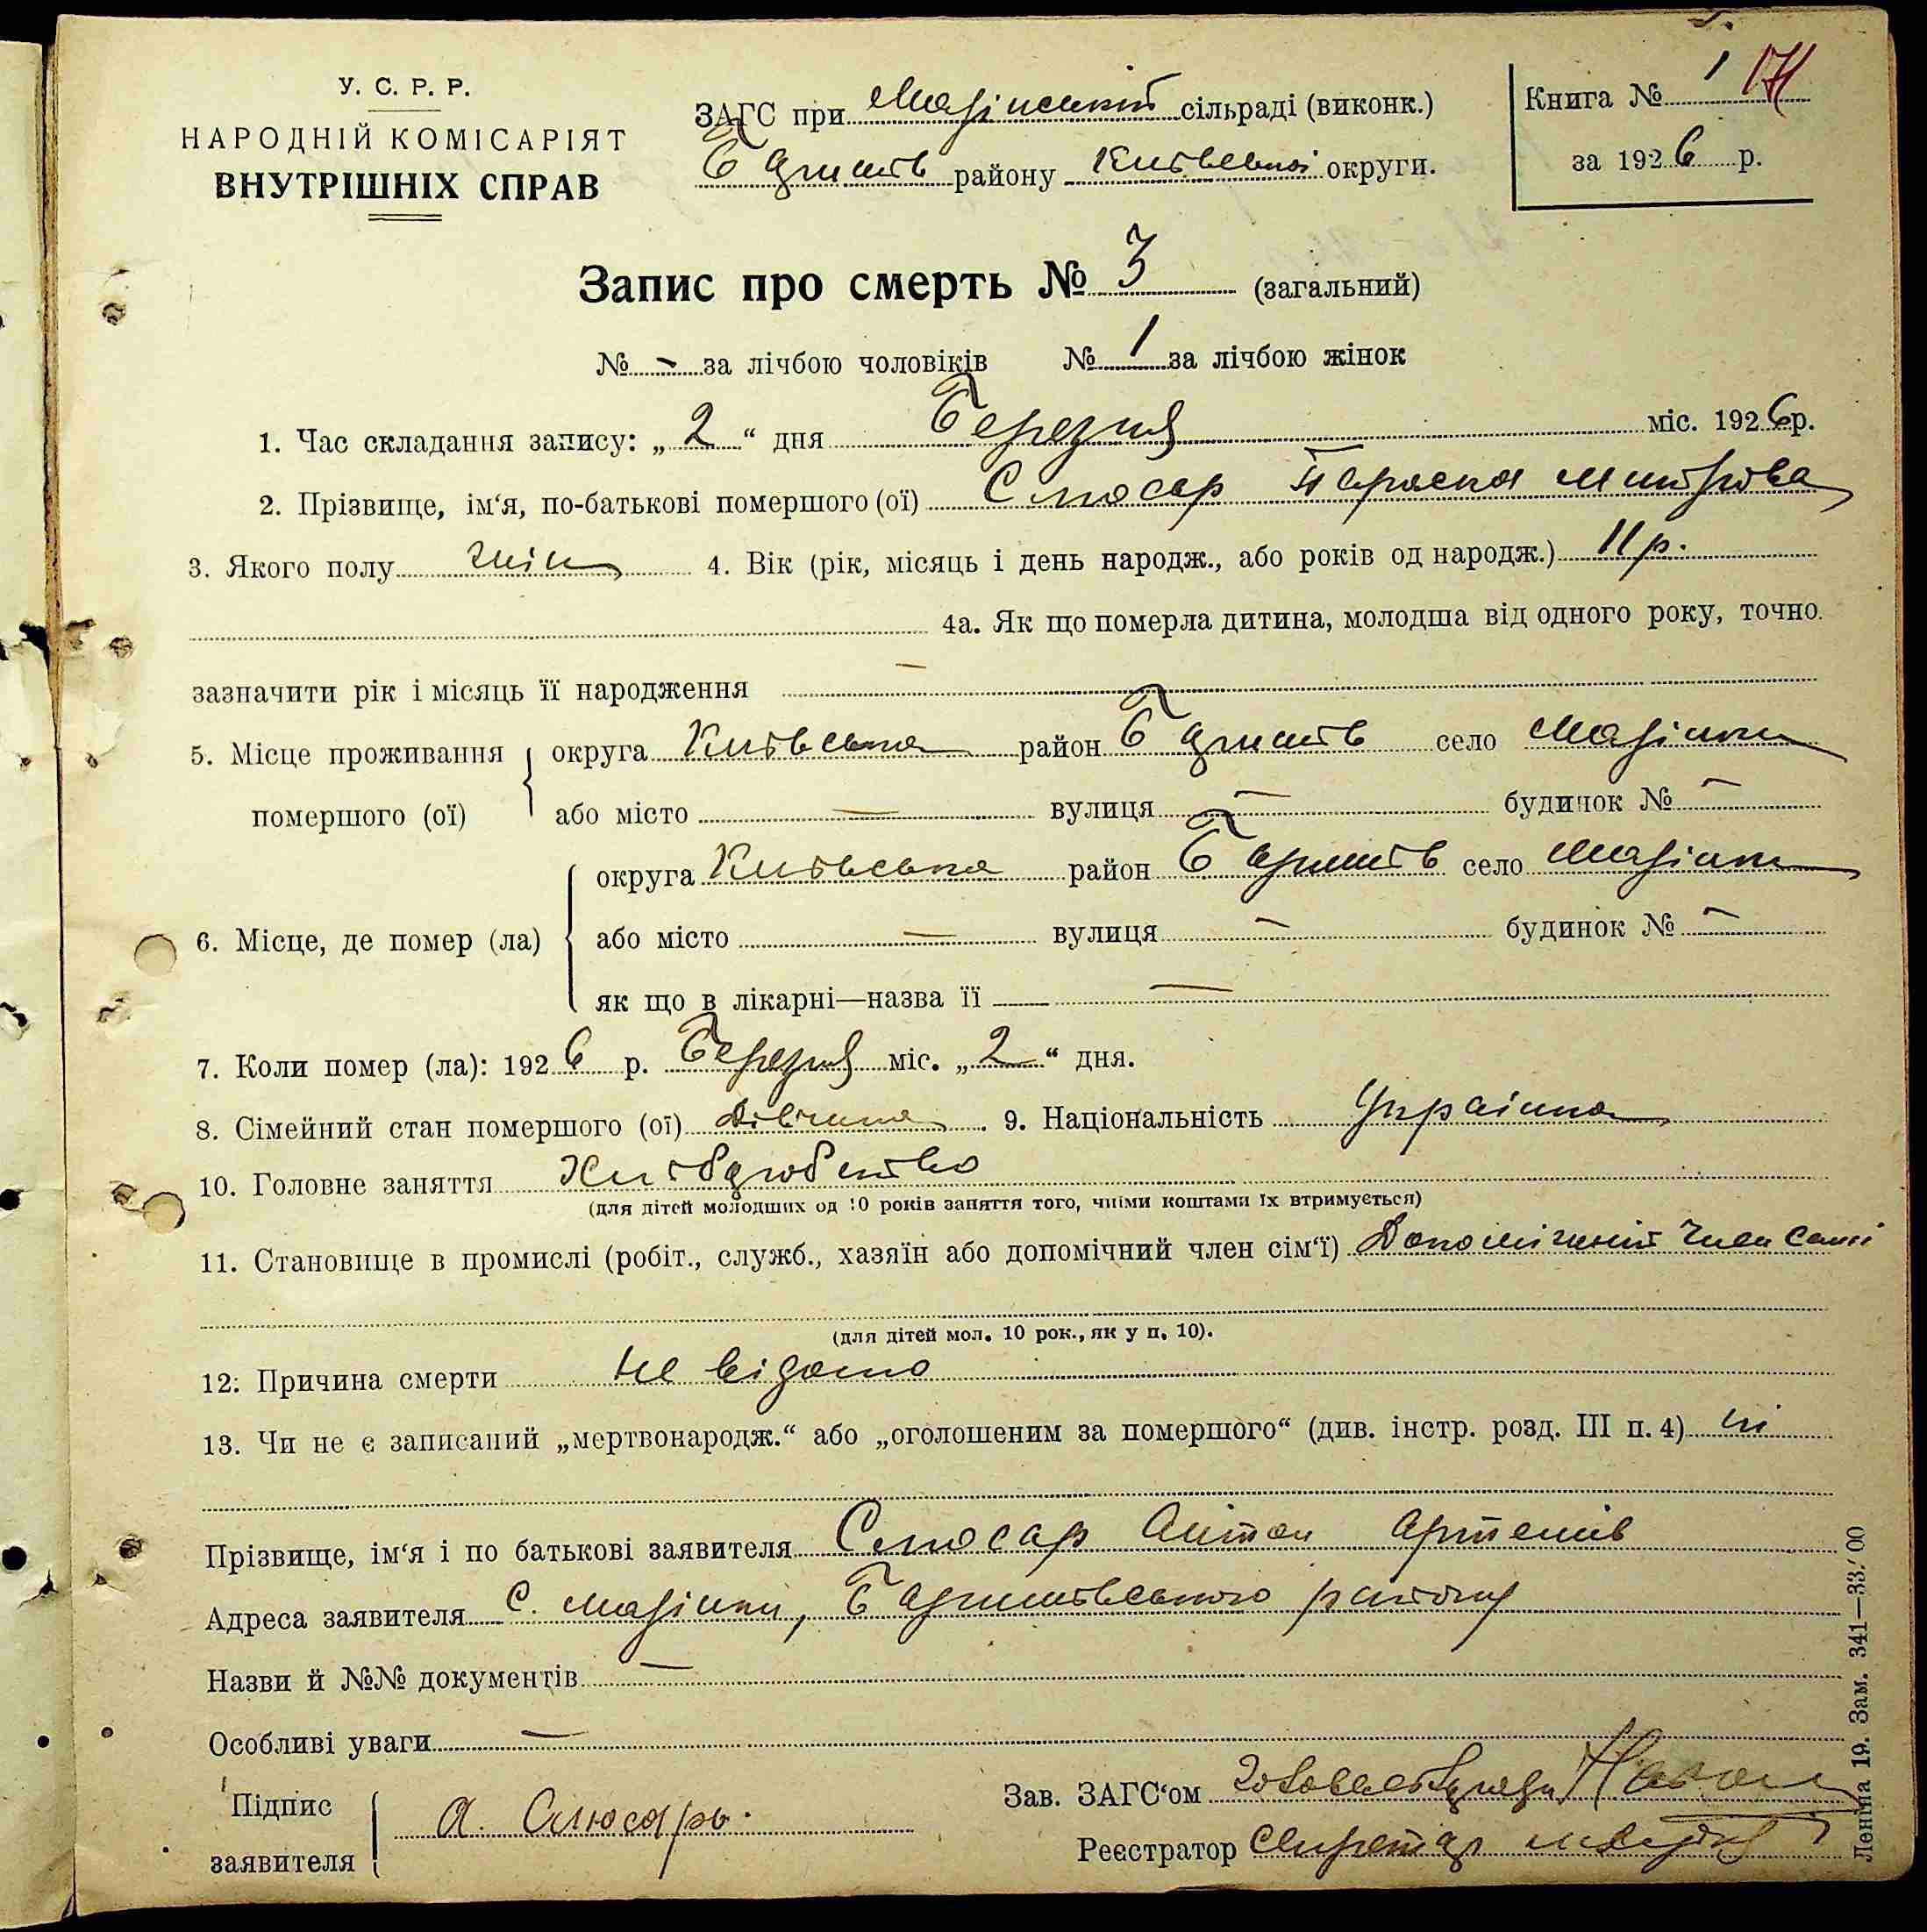 У. С. Р. Р.
НАРОДНІЙ КОМІСАРІЯТ
ВНУТРІШНІХ СПРАВ
ЗАГС при сільраді (виконк.)
району Київської округи.
Книга № 1 171
за 1926 р.
Запис про смерть № 3 (загальний)
№ - за лічбою чоловіків № 1 за лічбою жінок
1. Час складання запису: „2“ дня Березня міс. 1926 р.
2. Прізвище, ім‘я, по-батькові помершого (ої) Слюсар Параска Митрова
3. Якого полу жін 4. Вік (рік, місяць і день народж., або років од народж.) 11 р.
4а. Як що померла дитина, молодша від одного року, точно
зазначити рік і місяць її народження —
5. Місце проживання помершого (ої) округа Київська район Баришів село Мазінки
або місто — вулиця — будинок № —
6. Місце, де помер (ла) округа Київська район Баришів село Мазінки
або місто — вулиця — будинок № —
як що в лікарні—назва її —
7. Коли помер (ла): 1926 р. Березня міс. „2“ дня.
8. Сімейний стан помершого (ої) Дівчина. 9. Національність Українка
10. Головне заняття Хліборобство
(для дітей молодших од 10 років заняття того, чиїми коштами їх втримується)
11. Становище в промислі (робіт., служб., хазяїн або допомічний член сім‘ї) Допомічний член самі
(для дітей мол. 10 рок., як у п. 10).
12. Причина смерти не відомо
13. Чи не є записаний „мертвонародж.“ або „оголошеним за помершого“ (див. інстр. розд. III п. 4) ні
Прізвище, ім‘я і по батькові заявителя Слюсар Антон Артемів
Адреса заявителя с. Мазінки, Баришівського району
Назви й №№ документів —
Особливі уваги —
Підпис заявителя А. Слюсарь.
Зав. ЗАГС‘ом
Реєстратор Секретар
Леніна 19. Зам. 341—33.